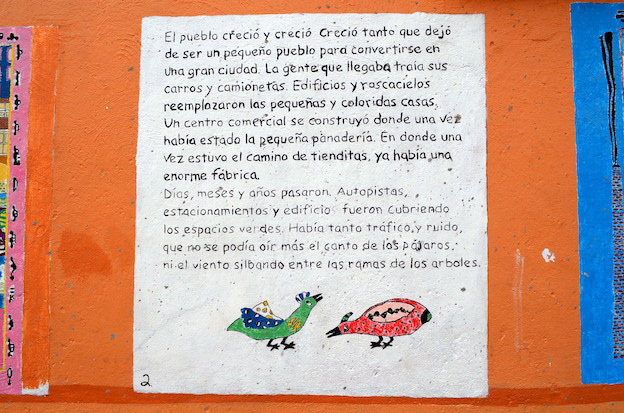 El pueblo creció y creció Creció tanto que dejó
de ser un pequeño pueblo para convertirse en
una gran ciudad. La gente que llegaba traia sus
carros y camionetas. Edificios y rascacielos
reemplazaron las pequeñas y coloridas casas.
Un centro comercial se construyó donde una vez
había estado la pequeña panadería. En donde una
vez estuvo el camino de tienditas, ya había una
enorme fábrica.
Días, meses y años pasaron. Autopistas,
estacionamientos y edificio fueron cubriendo
los espacios verdes. Había tanto tráfico y ruido,
que no se podía oír más el canto de los pájaros,
ni el viento silbando entre las ramas de los arboles.
2